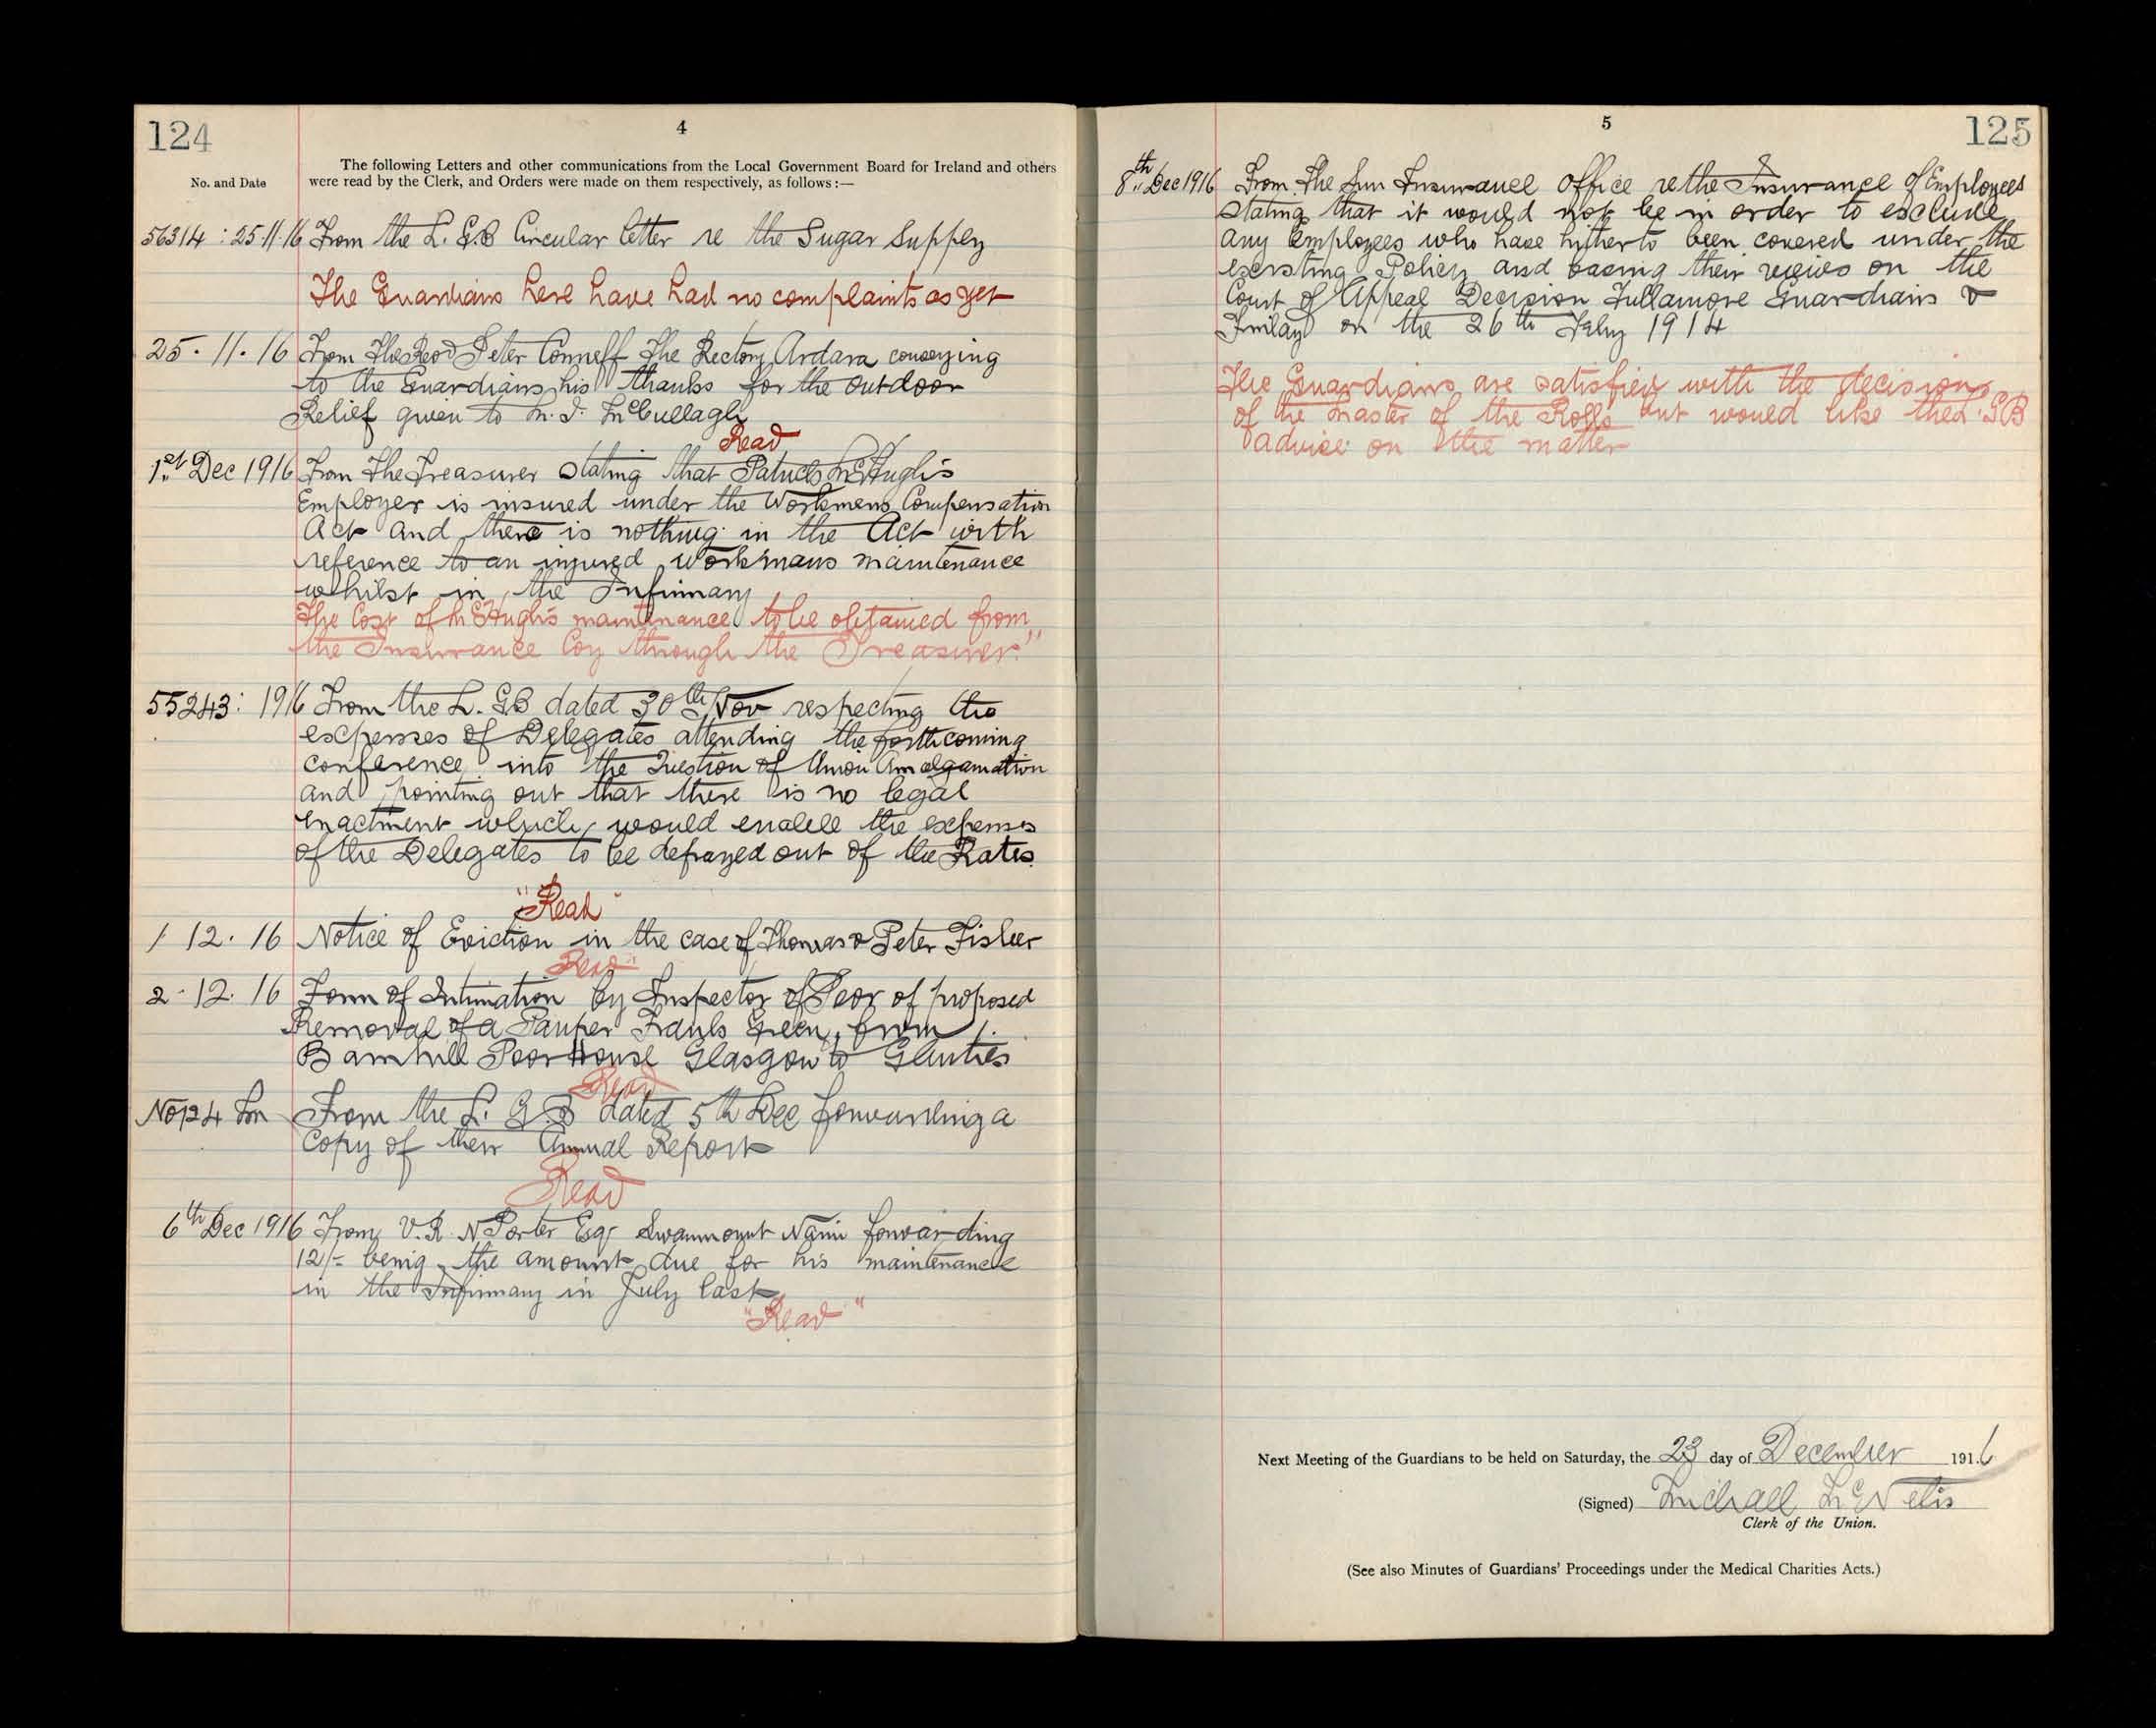 124
4
No. and Date
The following Letters and other communications from the Local Government Board for Ireland and others
were read by the Clerk, and Orders were made on them respectively, as follows:—
56314 : 25.11.16 From the L. G.B Circular letter re the Sugar Supply
The Guardians here have had no complaints as yet
25. 11. 16 From The Revd Peter Conneff The Rectory Ardara conveying
to the Guardians his thanks for the outdoor
Relief given to McCullagh
Read
1st Dec 1916 From The Treasurer stating that Patrick McHugh's
Employer is insured under the Workmens Compensation
Act and there is nothing in the Act with
reference to an injured workmans maintenance
whilst in the Infirmary
The Cost of McHugh's maintenance to be obtained from
the Insurance Coy through the Treasurer."
55243: 1916 From the L. GB dated 30th Nov respecting the
expenses of Delegates attending the forthcoming
conference into the Question of Union Amalgamation
and pointing out that there is no legal
enactment which would enable the expenses
of the Delegates to be defrayed out of the Rates.
"Read"
1 12. 16 Notice of Eviction in the case of Thomas & Peter Fisher
Read"
2. 12. 16 Form of Intimation by Inspector of Poor of proposed
Removal of a Pauper Frank Green, from
Barnhill Poor House Glasgow to Glenties
Read
No 124 From the L. G.B dated 5th Dec forwarding a
Copy of their Annual Report
Read
6th Dec 1916 From V. R. N Porter Esqr Swanmount Narin forwarding
12/- being the amount due for his maintenance
in the Infirmary in July last
"Read"
5
125
8th Dec 1916 From The Sun Insurance Office re the Insurance of Employees
stating that it would not be in order to exclude
any Employees who have hitherto been covered under the
existing Policy and basing their views on the
Court of Appeal Decision Tullamore Guardians &
on the 26th Feby 1914
The Guardians are satisfied with the decision
of the Master of the Rolls but would like the L. G B
advice on the matter
Next Meeting of the Guardians to be held on Saturday, the 23 day of December 1916
(Signed) Michael McNelis
Clerk of the Union.
(See also Minutes of Guardians' Proceedings under the Medical Charities Acts.)